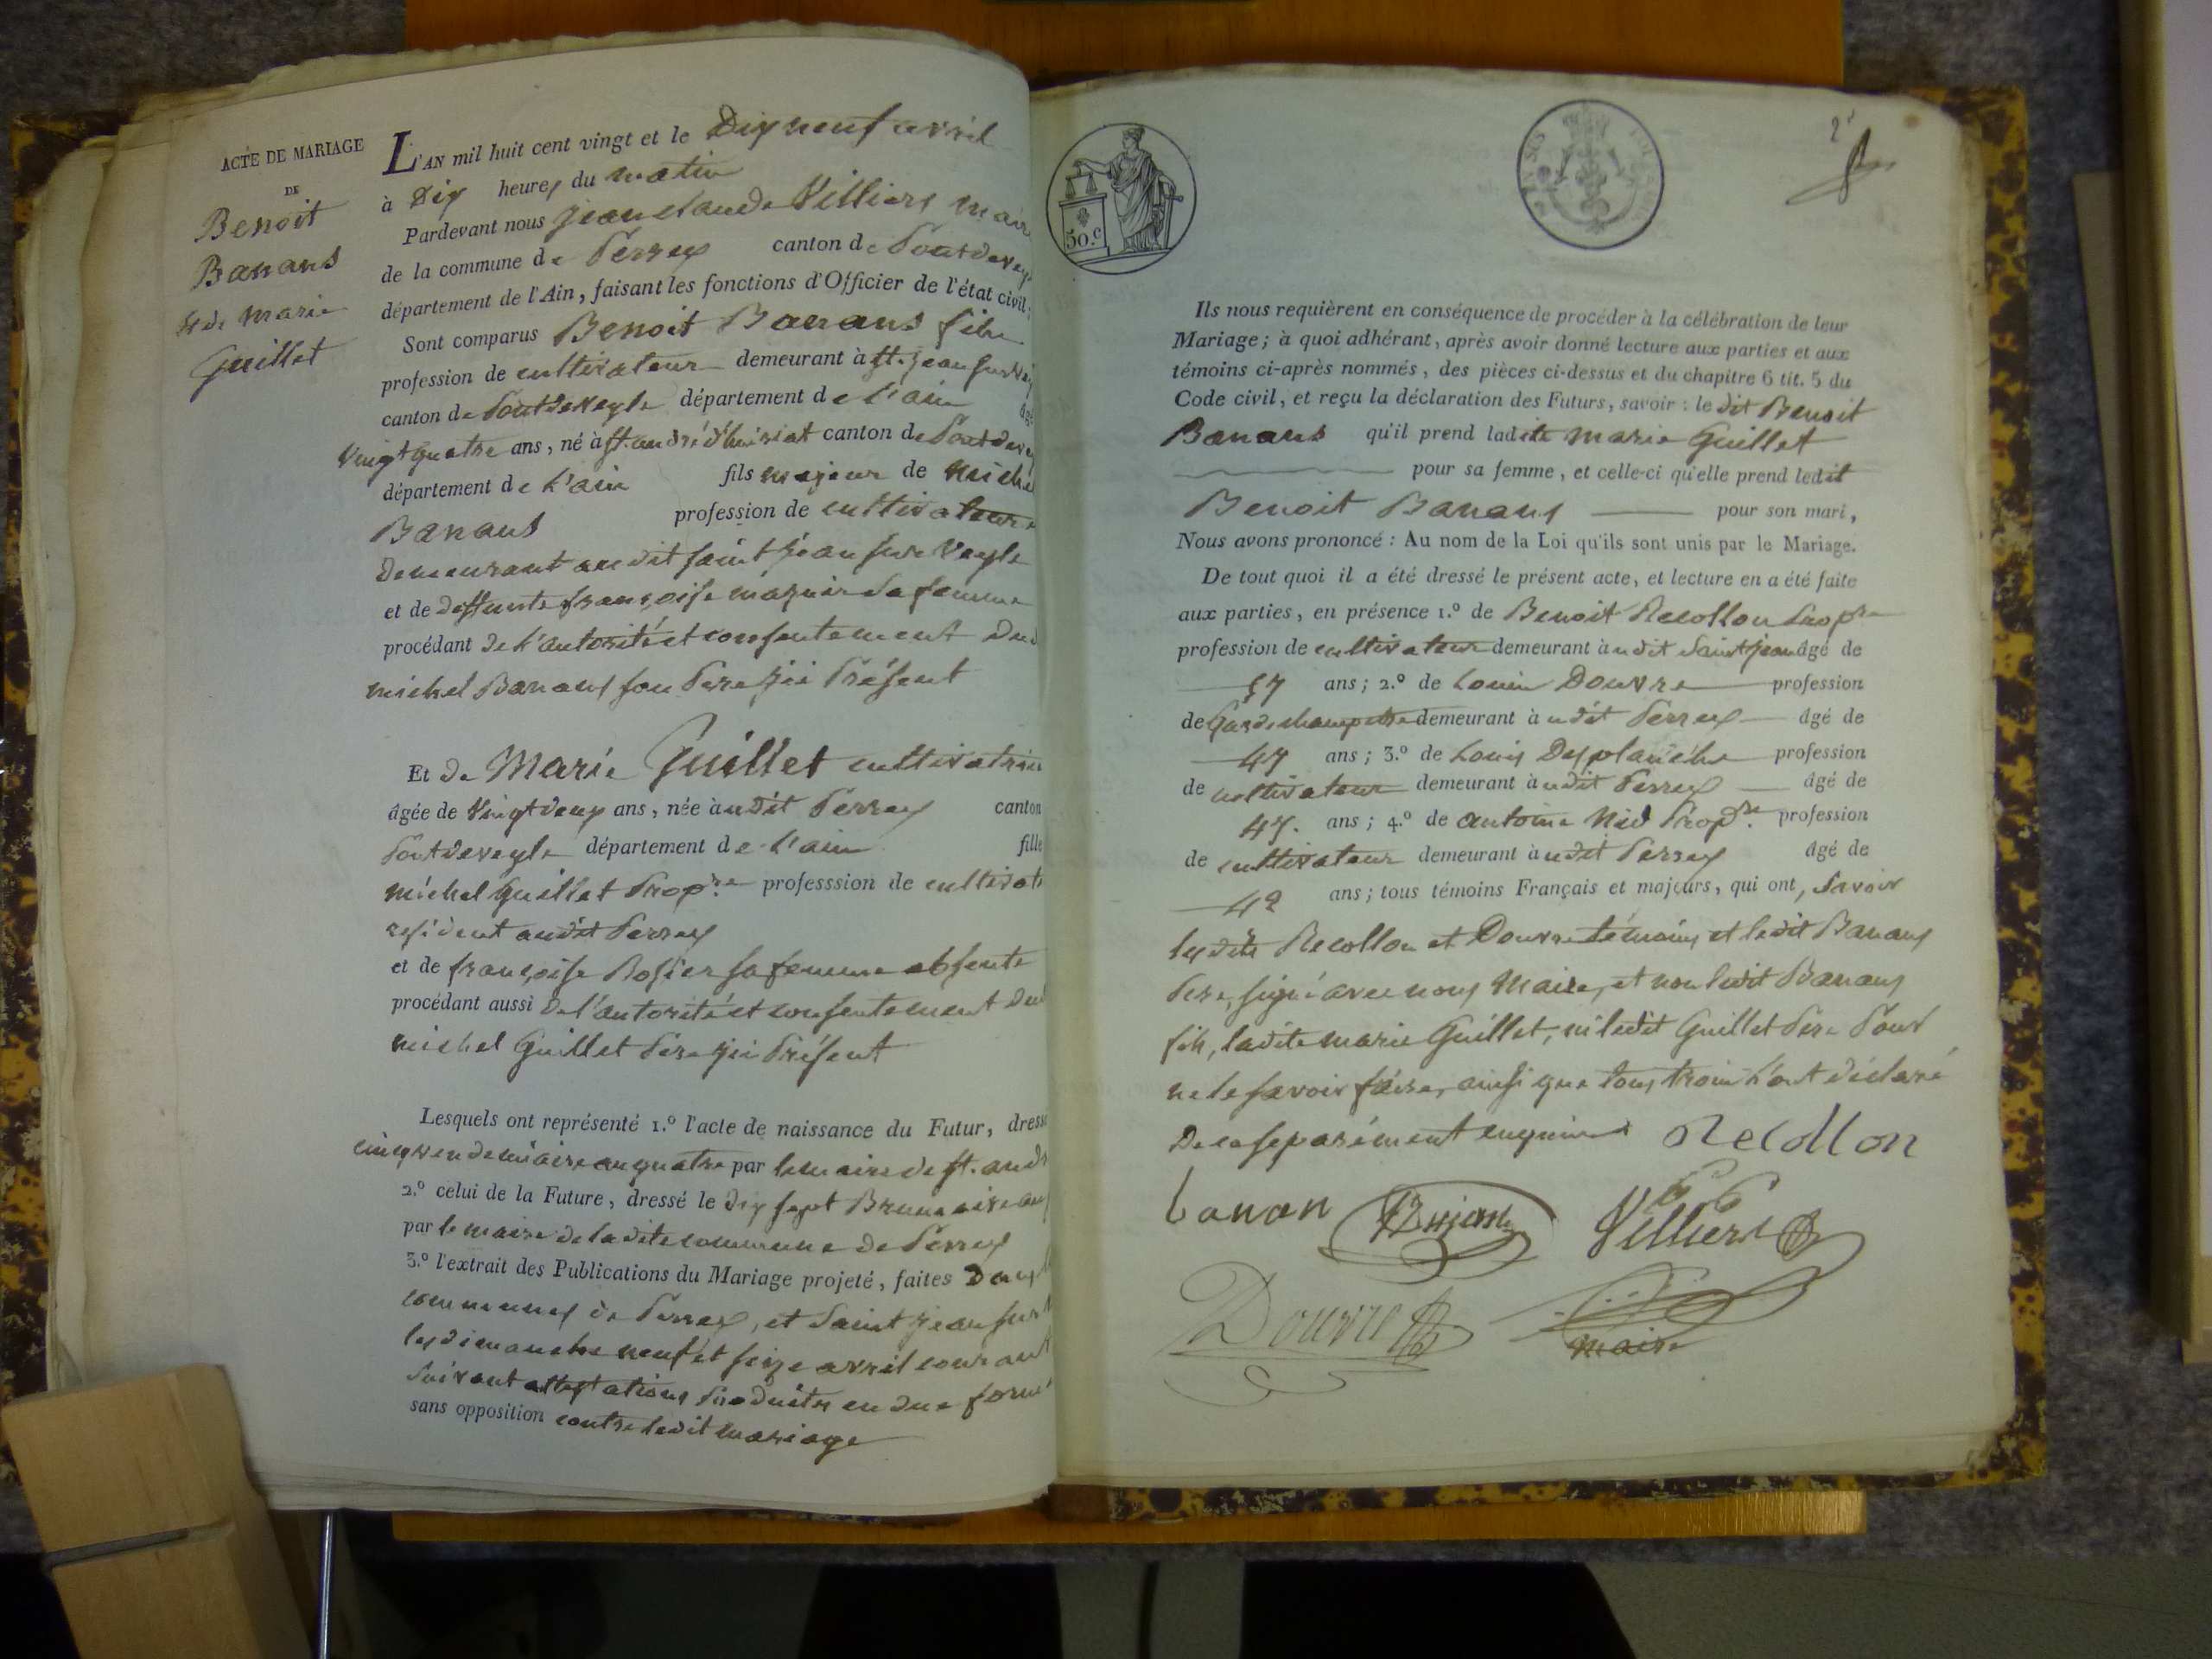 ACTE DE MARIAGE
DE
Benoit
Banans
& de marie
Guillet
L'AN mil huit cent vingt et le Dix neuf avril
à Dix heures du matin
Pardevant nous jean claude Villiers Maire
de la commune de Perrex canton de Pontdeveyle
département de l'Ain, faisant les fonctions d'Officier de l'état civil;
Sont comparus Benoit Banans fils
profession de cultivateur demeurant à st. jean sur vey
canton de Pontdeveyle département de l'ain âgé
vingt quatre ans, né à st. andré d'huiriat canton de Pontdevey
département de l'ain fils majeur de Michel
Banans profession de cultivateur
demeurant au dit saint jean sur Veyle
et de deffunte françoise sa femme
procédant de l'autorité et consentement dud
michel Banans son Pere ici Présent
Et de Marie Guillet cultivatrice
âgée de Vingt deux ans, née audit Perrex canton
Pontdeveyle département de l'ain fille
michel Guillet Propre professsion de cultivat
resident audit Perrex
et de françoise Rosier sa femme absente
procédant aussi de l'autorité et consentement dud
michel Guillet Pere ici Présent
Lesquels ont représenté 1.º l'acte de naissance du Futur, dressé
cinq vendemiaire an quatre par le maire de st. andr
2.º celui de la Future, dressé le dix sept Brumaire an
par le maire de la dite commune de Perrex
3.º l'extrait des Publications du Mariage projeté, faites Dans l
communes de Perrex, et Saint jean sur
les dimanche neuf et seize avril courant
suivant attestations Produites en due forme
sans opposition contre ledit mariage
50.c
2e
Ils nous requièrent en conséquence de procéder à la célébration de leur
Mariage; à quoi adhérant, après avoir donné lecture aux parties et aux
témoins ci-après nommés, des pièces ci-dessus et du chapitre 6 tit. 5 du
Code civil, et reçu la déclaration des Futurs, savoir: le dit Benoit
Banans qu'il prend ladite marie Guillet
pour sa femme, et celle-ci qu'elle prend ledit
Benoit Banans pour son mari,
Nous avons prononcé: Au nom de la Loi qu'ils sont unis par le Mariage.
De tout quoi il a été dressé le présent acte, et lecture en a été faite
aux parties, en présence 1.º de Benoit Recollon Propre
profession de cultivateur demeurant à udit Saint jean âgé de
57 ans; 2.º de Louis Douvre profession
de Garde champetre demeurant à udit Perrex âgé de
47 ans; 3.º de Louis Desplanche profession
de cultivateur demeurant à udit Perrex âgé de
47. ans; 4.º de antoine Nid Propre profession
de cultivateur demeurant à udit Perrex âgé de
42 ans; tous témoins Français et majeurs, qui ont, Savoir
lesdits Recollon et Douvre témoins et ledit Banans
Pere, signé avec nous Maire, et non ledit Banans
fils, ladite marie Guillet, ni ledit Guillet Pere Pour
ne le savoir faire, ainsi que tous trois l'ont déclaré
De ce separément enquis Recollon
banan Dujast Villiers
Douvre
maire